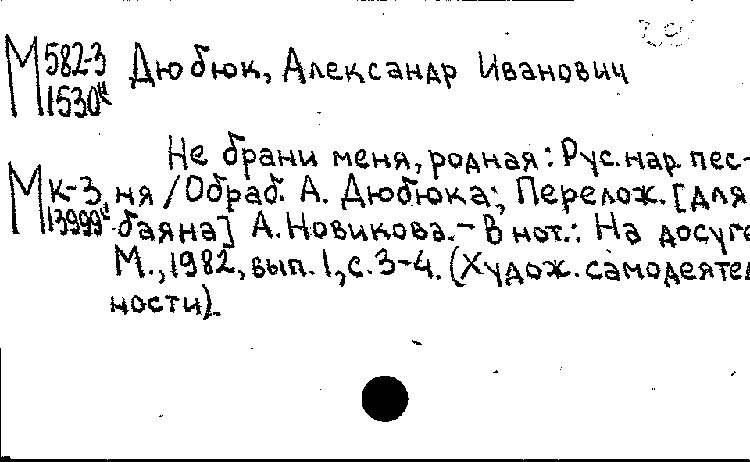 М 582-3 Дюбюк, Александр Иванович
1530и
Не брани меня, родная: Рус. нар. пес-
М к-3 ня / Обраб. А. Дюбюка; Перелож. [для
13999и баяна] А. Новикова. - В нот.: На досуге
М., 1982, вып. 1, с. 3-4. (Худож. самодеятел
ности).